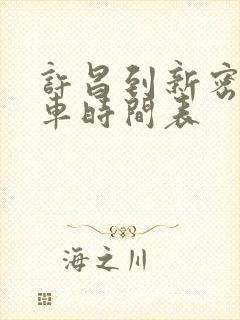 許昌到新密
車時間表
海之川